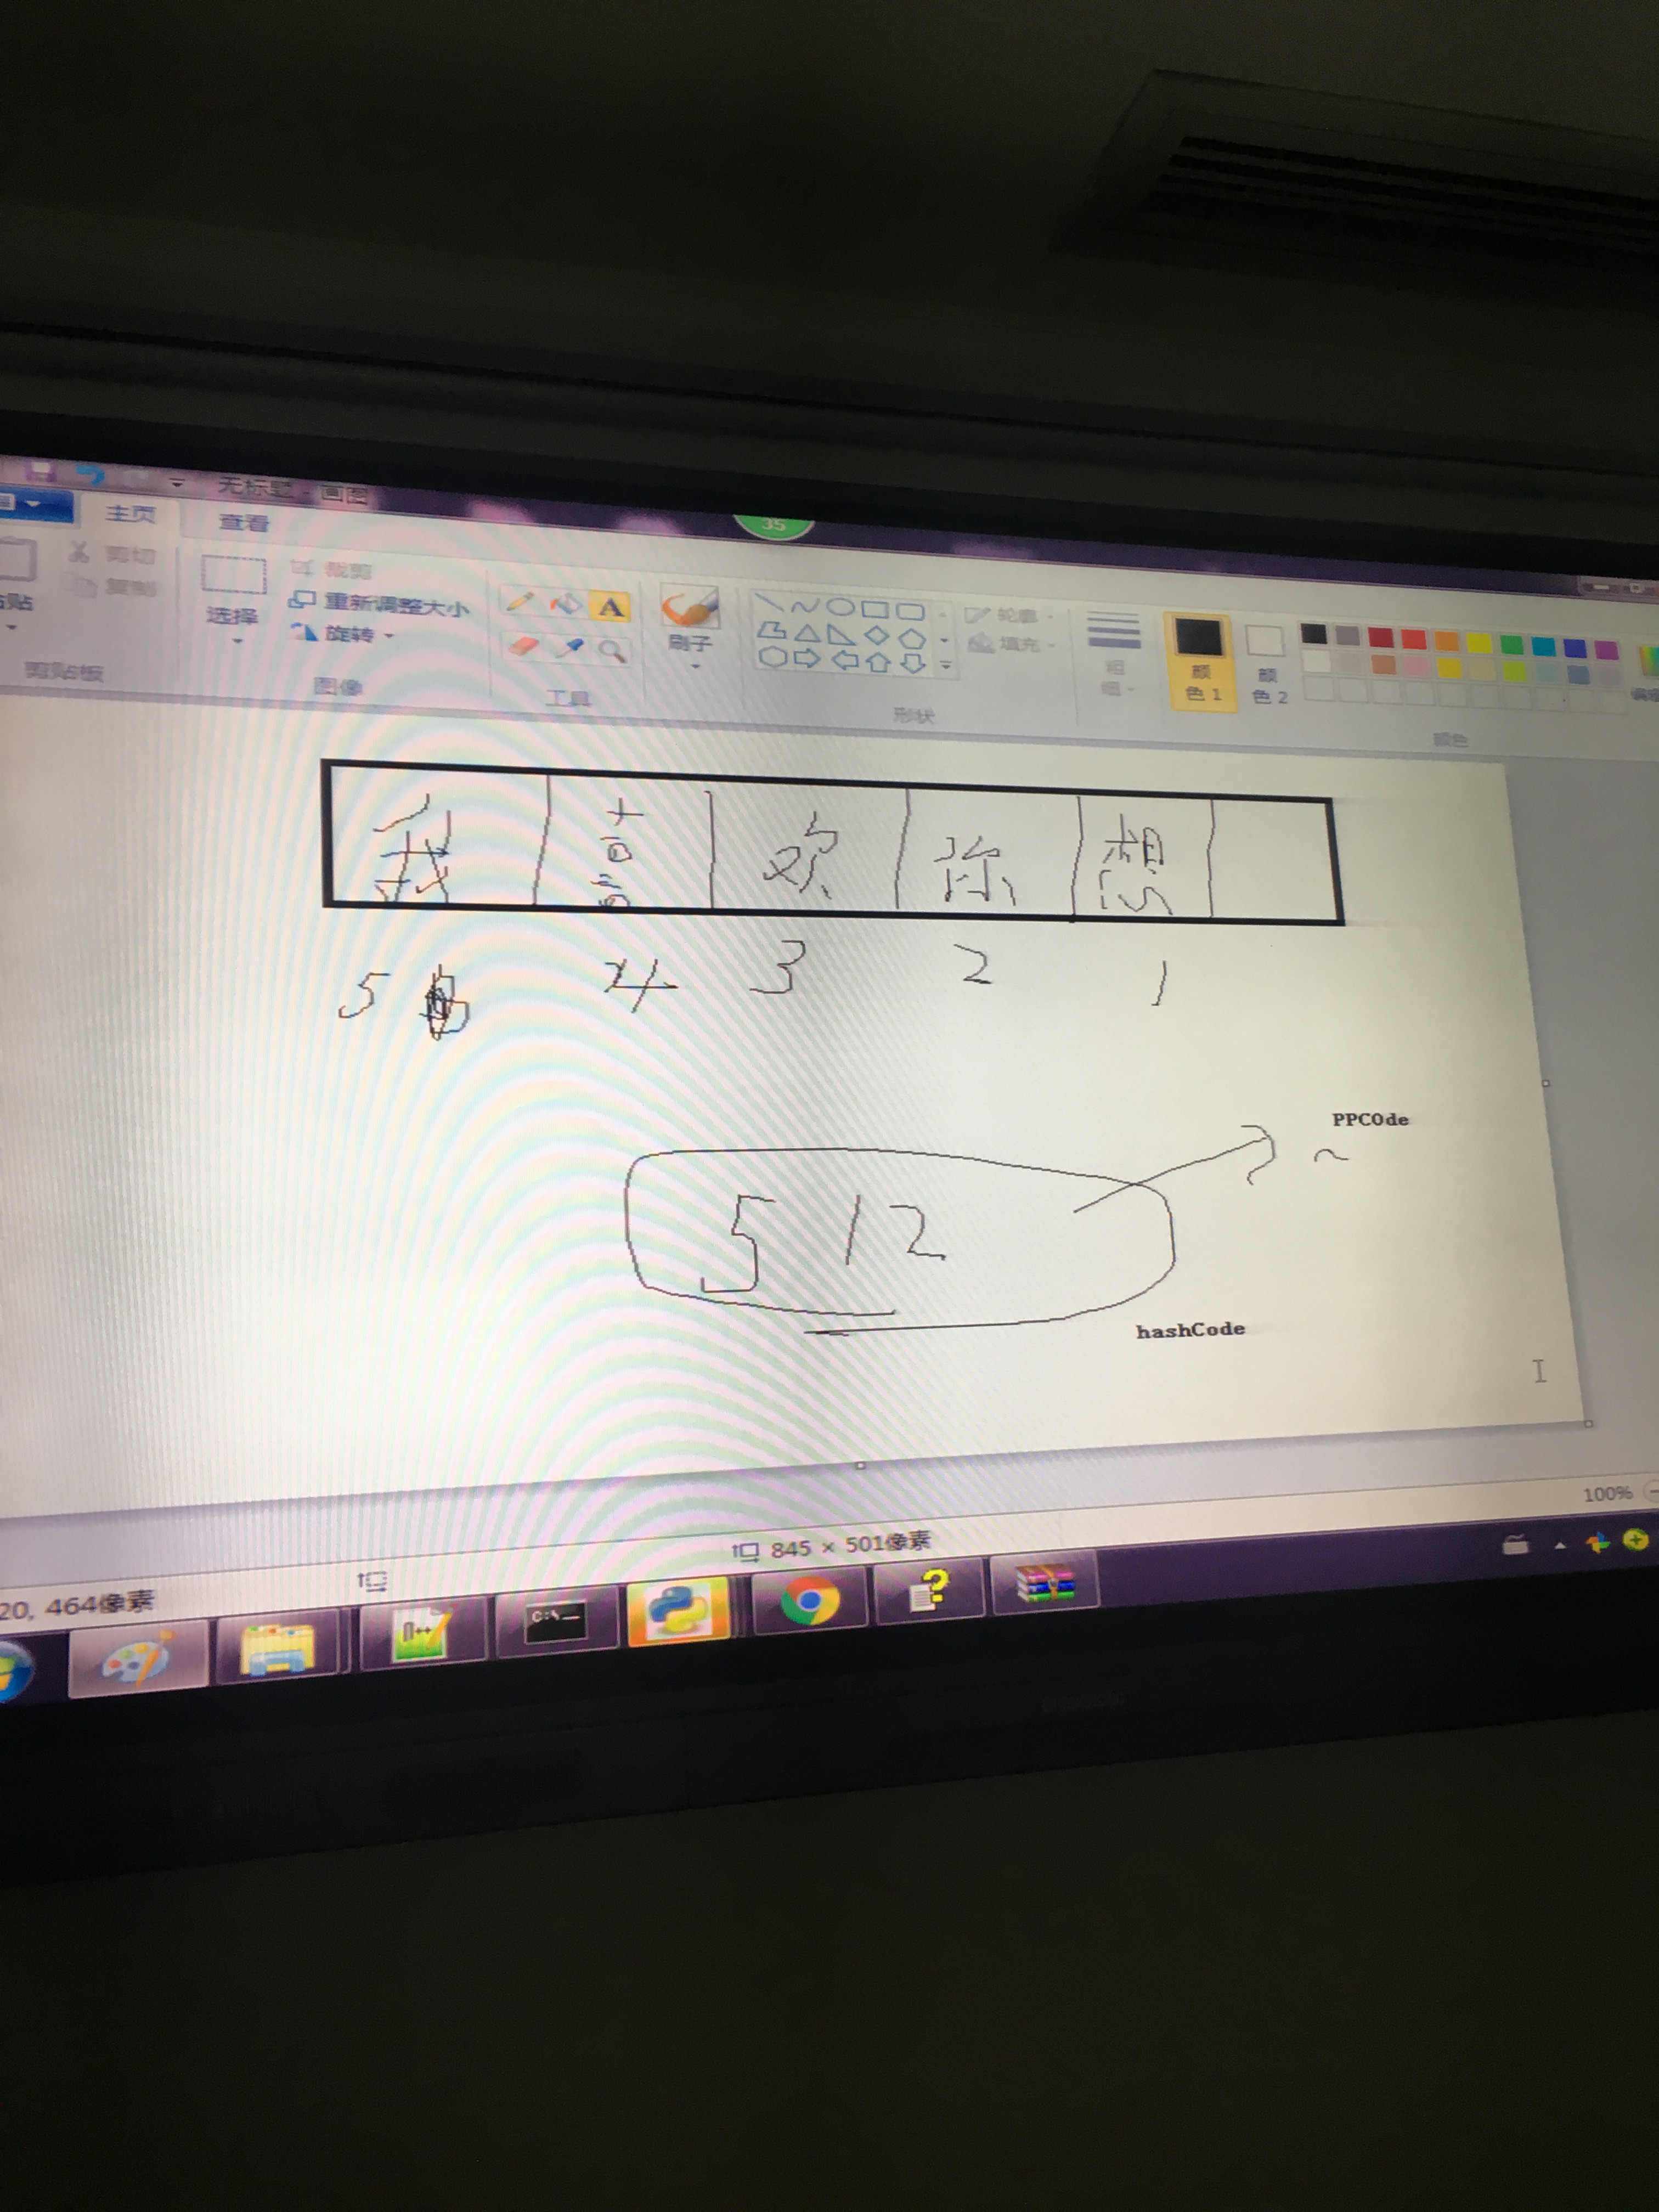 无标题 - 画图
主页 查看
35
剪切
复制
剪贴板
选择
裁剪
重新调整大小
旋转
图像
A
工具
刷子
轮廓
填充
形状
粗细
颜色 1
颜色 2
颜色
我 喜 欢 你 想
5 4 3 2 1
PPCOde
512
hashCode
100%
845 × 501像素
20, 464像素
C:\_